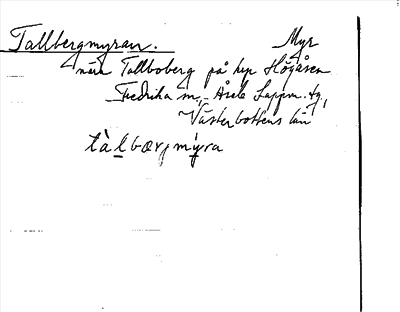 Tallbergmyran. Myr
när Tallboberg på hyp Högåsen
Fredrika sn, Åsele Lappm. tg,
Västerbottens län
tàlbærjmýra